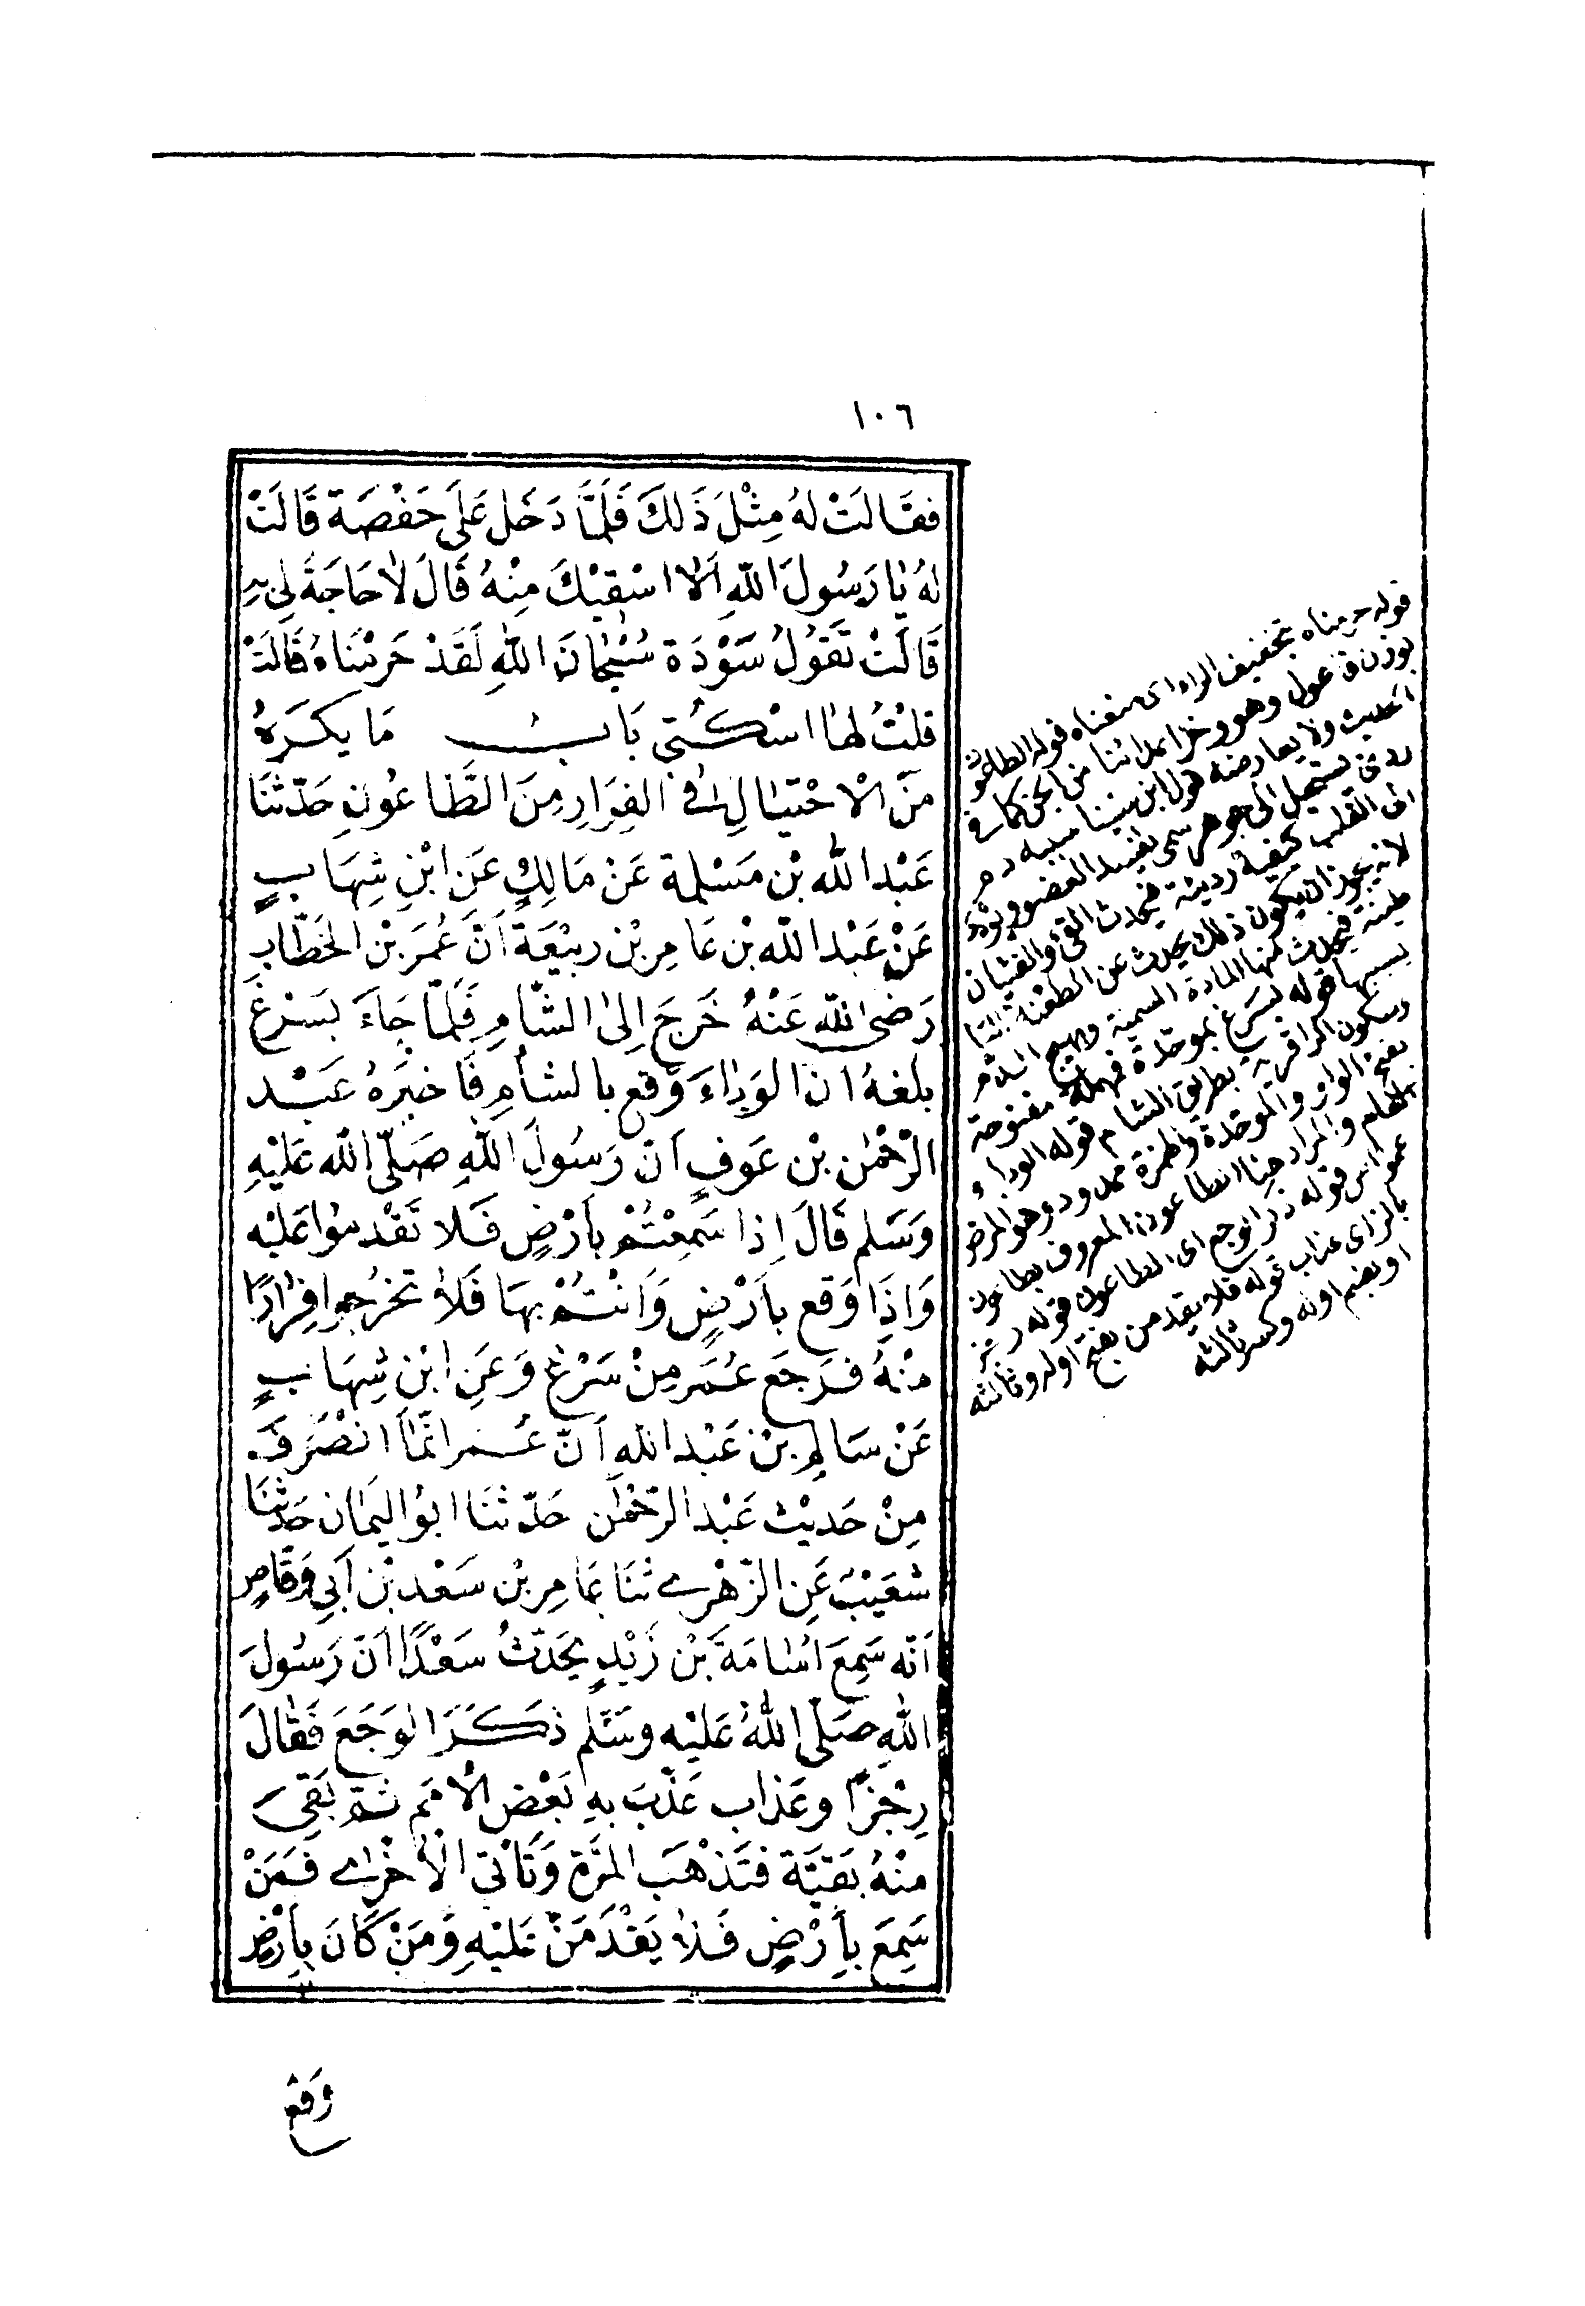 ١٠٦
فَقَالَتْ لَهُ مِثْلَ ذَلِكَ فَلَمَّا دَخَلَ عَلَى حَفْصَةَ قَالَتْ
لهُ يَا رَسُولَ اللّٰهِ اَلَا اسْقِيْكَ مِنْهُ قَالَ لَا حَاجَةَ لِى بِهِ
قَالَتْ تَقُولُ سَوْدَة سُبْحَانَ اللّٰهِ لَقَدْ حَرَمْنَاهُ قَالَتْ
قلْتُ لهَا اسْكُتى بَابُ مَا يكرَهُ
منَ الْاحْتيَالِ فى الفِرَارِ مِنَ الطَّاعُونِ حَدّثنَا
عَبْد اللّٰه بْن مَسْلمة عَنْ مَالِكٍ عَن ابْنِ شِهَابٍ
عَنْ عَبْد اللّٰه بْن عَامِر بْن ربيْعَةَ اَنَّ عُمَرَ بْن الخَطّابِ
رَضىَ اللّٰه عَنْهُ خَرجَ اِلىَ الشّامِ فَلمّا جَاءَ بسَرْغَ
بلغهُ ان الوَبَاءَ وَقع بالشأمِ فَاخبَرَهُ عَبْد
الرّحْمٰن بْن عَوفٍ اَنّ رَسُولَ اللّٰهِ صَلّى اللّٰه عَليْهِ
وَسَلم قَالَ اِذا سَمِعْتُمْ بأَرْضٍ فَلا تَقْدمُوا عَليْه
وَاِذَا وَقع بأَرْضٍ وَاَنْتُمْ بهَا فَلَا تخرُجوا فِرَارًا
منْهُ فرَجَع عُمَر مِنْ سَرْغَ وَعَنِ ابْنِ شِهَابٍ
عَنْ سَالمِ بْن عَبْد اللّٰه اَنّ عُمر انَّمَا انْصَرَفَ
مِنْ حَديْث عَبْد الرّحْمٰن حَدّثنَا ابوُ اليَمَان حَدّثنَا
شعَيْبٌ عَنِ الزّهْرى ثنَا عَامِر بْن سَعْد بْن اَبِى وَقّاصٍ
اَنّه سَمِعَ اُسَامَةَ بْن زَيْدٍ يحَدّثُ سَعْدًا اَنّ رَسُولَ
اللّٰهِ صَلّى اللّٰهُ عَليْه وسَلم ذكَرَ الوَجَعَ فَقَالَ
رِجْزٌ او عَذاب عَذّبَ بهِ بَعْض الْامَم ثم بَقِىَ
منْهُ بَقيّة فتَذْهَبَ المرّة وَتَأتى الْاخْرى فمَنْ
سَمِعَ بأَرْضٍ فَلَا يَقْدَمَنَّ عَليْهِ وَمَنْ كَانَ بأَرْضٍ
وَقع
قوله حرمناه بتخفيف الراء اى منعناه قوله الطاعون
بوزن فاعول وهو وخز اعدائنا من الجن كما فى
الحديث ولا يعارضه قول ابن سينا سببه دم
ردئ يستحيل الى جوهر سمى يفسد العضو ويؤدى
الى القلب كيفية رديئة فيحدث القئ والغثيان
لانه يجوز ان يكون ذلك يحدث عن الطعنة الباطنة
فيحدث منها المادة السمية ويهيج الدم
بسببها قوله بسرغ بموحدة فمهملة مفتوحة
وسكون الراء قرية بطريق الشام قوله الوباء
بفتح الواو والموحدة والهمزة ممدود وهو المرض
العام والمراد هنا الطاعون المعروف بطاعون
عمواس قوله ذكر الوجع اى الطاعون قوله رجز
بالزاى عذاب قوله فلا يقدمن بفتح اوله وثالثه
او بضم اوله وكسر ثالثه